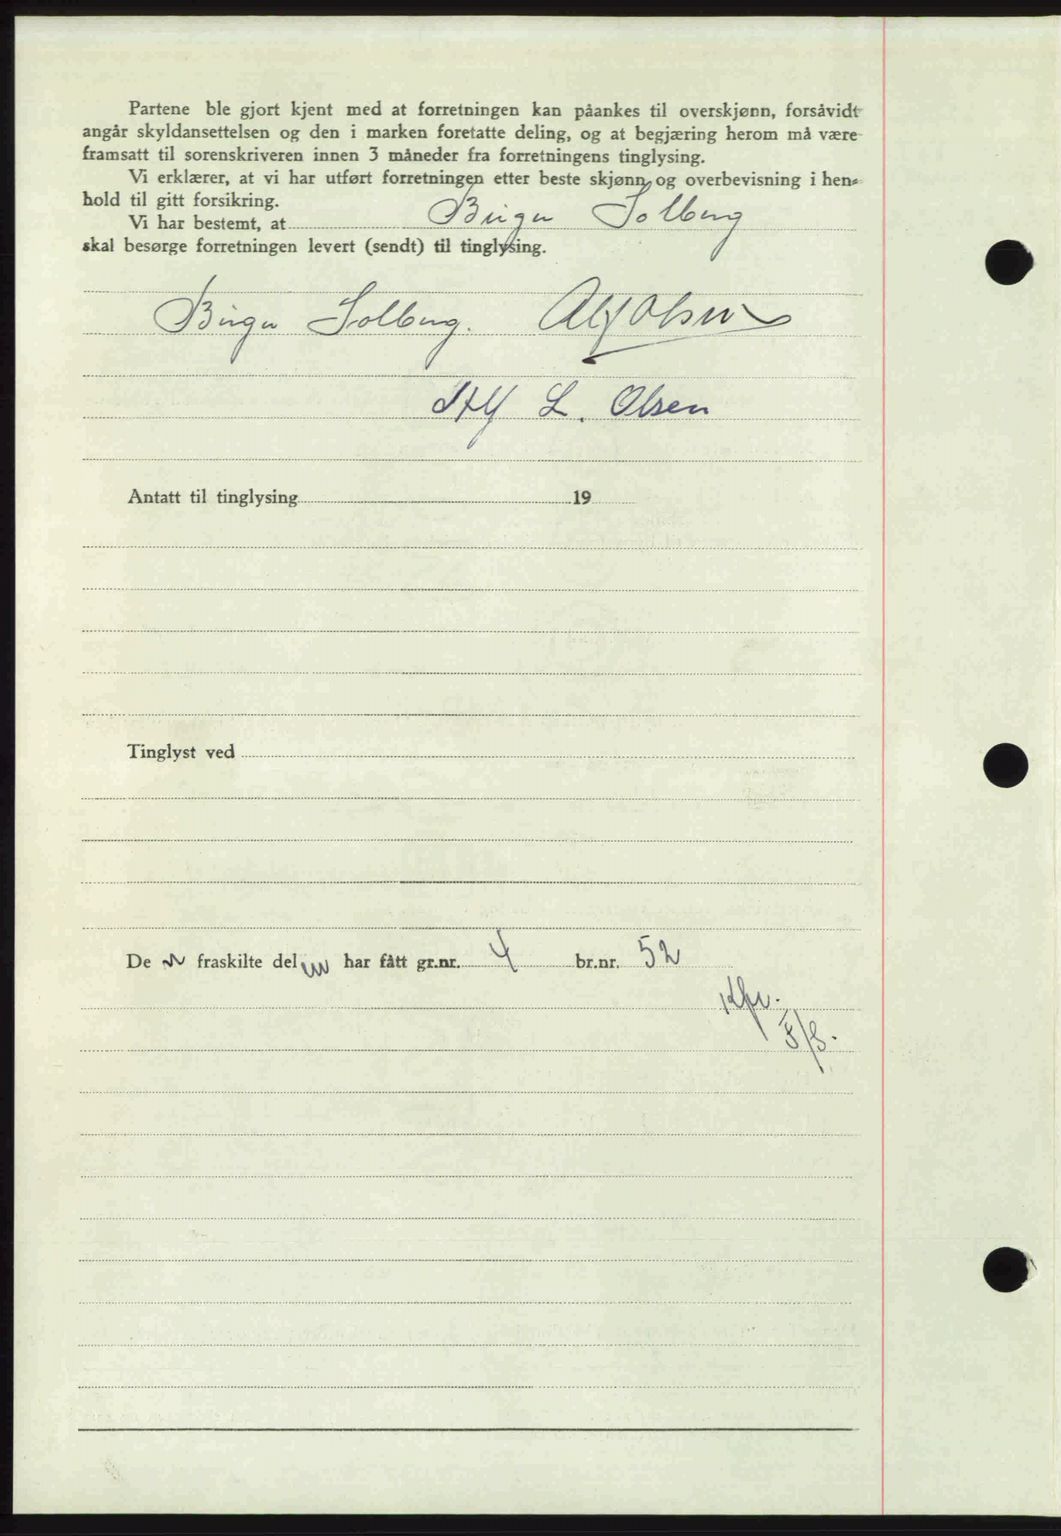 Partene ble gjort kjent med at forretningen kan påankes til overskjønn, forsåvidt
angår skyldansettelsen og den i marken foretatte deling, og at begjæring herom må være
framsatt til sorenskriveren innen 3 måneder fra forretningens tinglysing.
Vi erklærer, at vi har utført forretningen etter beste skjønn og overbevisning i hen-
hold til gitt forsikring.
Vi har bestemt, at Birger Solberg
skal besørge forretningen levert (sendt) til tinglysing.
Birger Solberg. Alf Olsen
Alf L. Olsen
Antatt til tinglysing 19
Tinglyst ved
De n fraskilte del har fått gr.nr. 4 br.nr. 52